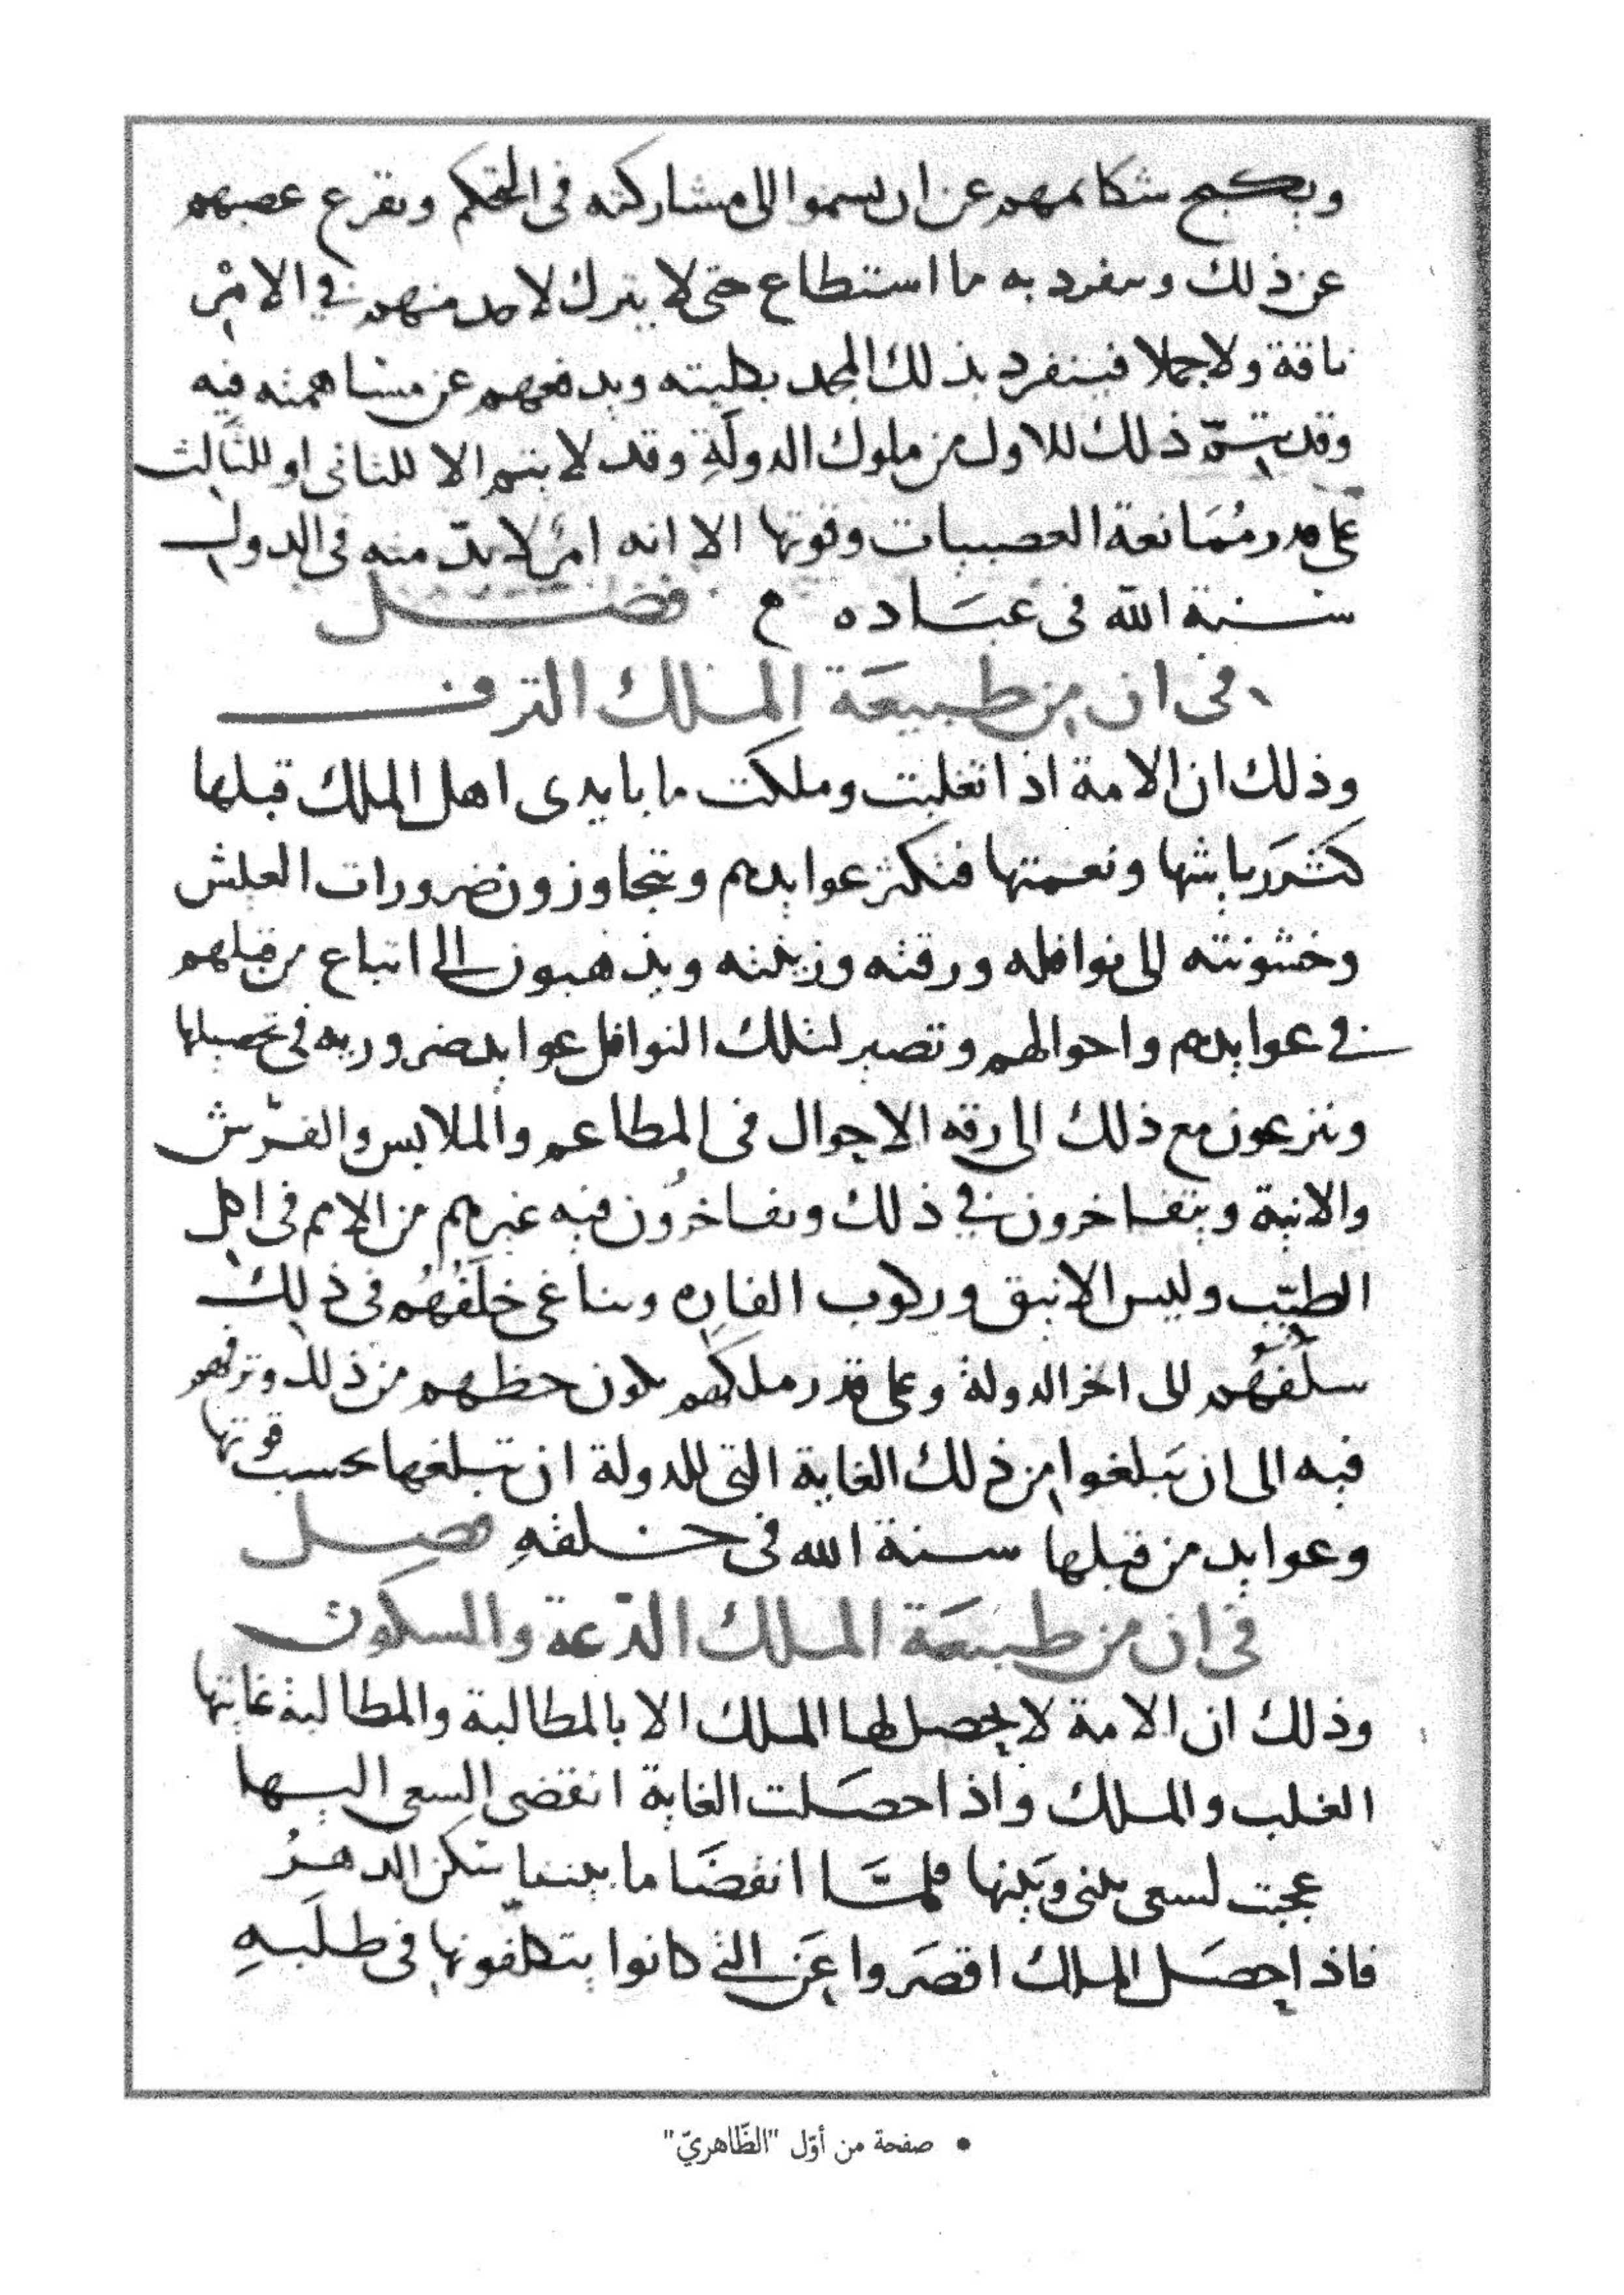 ويكبح شكائمهم عن ان يسموا الى مشاركته في التحكم وتقرع عصبهم
عن ذلك وينفرد به ما استطاع حتى لا يترك لاحد منهم في الامر
ناقة ولا جملا فينفرد بذلك المجد بكليته ويدفعهم عن مساهمته فيه
وقد يتمّ ذلك للاول من ملوك الدولةِ وقد لا يتم الا للثاني او للثالث
على قدر مُمَانعة العصبيات وقوتها الا انه امرٌ لا بدّ منه في الدول
سنة الله في عبَاده فصل
في ان من طبيعَة الملك الترف
وذلك ان الامة اذا تغلبت وملكت ما بايدي اهل الملك قبلها
كثر رياشها ونعمتها فتكثر عوايدهم ويتجاوزون ضرورات العيش
وخشونته الى نوافله ورقته وزينته ويذهبون الى اتباع من قبلهم
في عوايدهم واحوالهم وتصير لتلك النوافل عوايد ضروريه في تحصيلها
وينزعون مع ذلك الى رقه الاحوال في المطاعم والملابس والفرش
والانية ويتفاخرون في ذلك ويفاخرُون فيه غيرهم من الامم في اكل
الطيّب ولبس الانيق وركوب الفارِه ويناغي خلَفُهُم في ذلك
سلَفهُم الى اخر الدولة وعلى قدر ملكهم يكون حظهم من ذلك وترفهم
فيه الى ان يَبلغوا من ذلك الغاية التي للدولة ان تبلغها بحسب قوتها
وعوايد من قبلها سنة الله في خلقهِ فصل
في ان من طبيعَة الملك الدّعة والسكون
وذلك ان الامة لا يحصل لها الملك الا بالمطالبة والمطالبة غايتها
الغلب والملك واذا حصَلت الغاية انقضى السعي اليها
عجبت لسعي بيني وبَينها فلمَّا انقضَا ما بيننا سكن الدهرُ
فاذا حصَل الملك اقصَروا عَن التي كانوا يتكلّفونها في طلَبهِ
• صفحة من أوّل "الظّاهريّ"